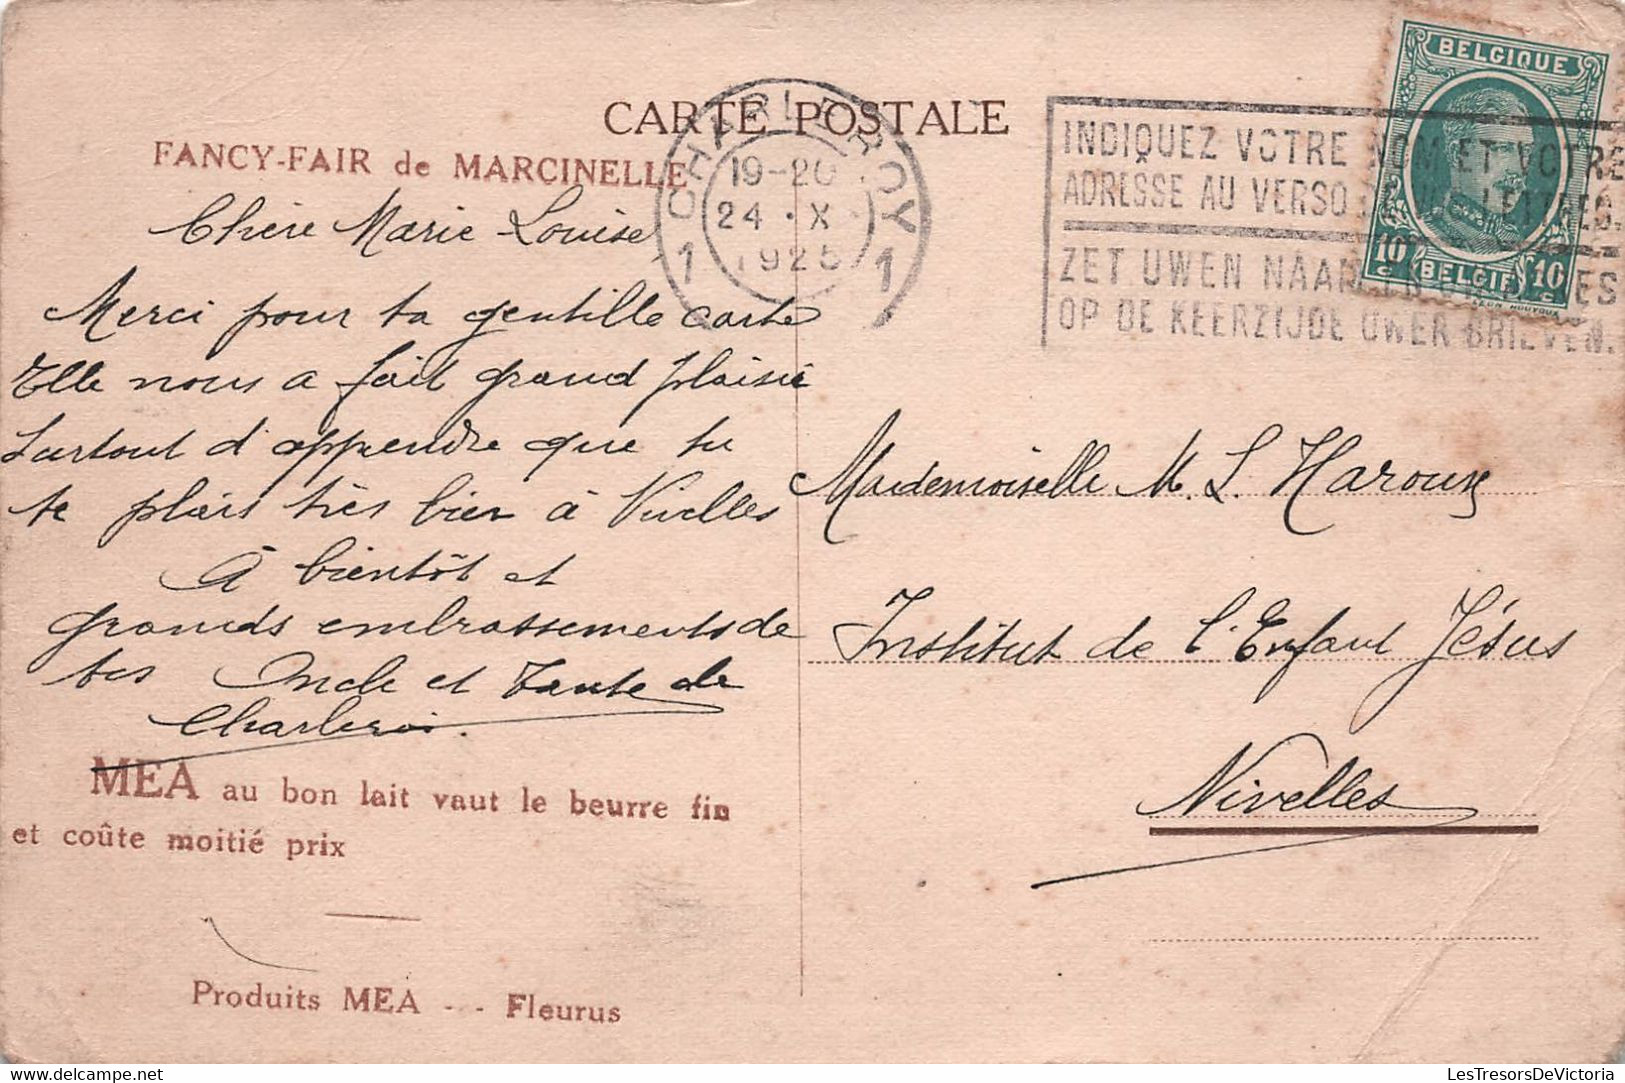 CARTE POSTALE
FANCY-FAIR de MARCINELLE
CHARLEROY
19-20
24 · X ·
1925
1 1
INDIQUEZ VOTRE NOM ET VOTRE
ADRESSE AU VERSO DE VOS LETTRES.
ZET UWEN NAAM EN ADRES
OP DE KEERZIJDE UWER BRIEVEN.
BELGIQUE
10 c BELGIË 10 c
Chère Marie Louise
Merci pour ta gentille carte
Elle nous a fait grand plaisir
surtout d'apprendre que tu
te plais très bien à Nivelles
A bientôt et
grands embrassements de
tes Oncle et Tante de
Charleroi.
MEA au bon lait vaut le beurre fin
et coûte moitié prix
Produits MEA - - - Fleurus
Mademoiselle M. L. Haroux
Institut de l'Enfant Jésus
Nivelles
LesTresorsDeVictoria
delcampe.net